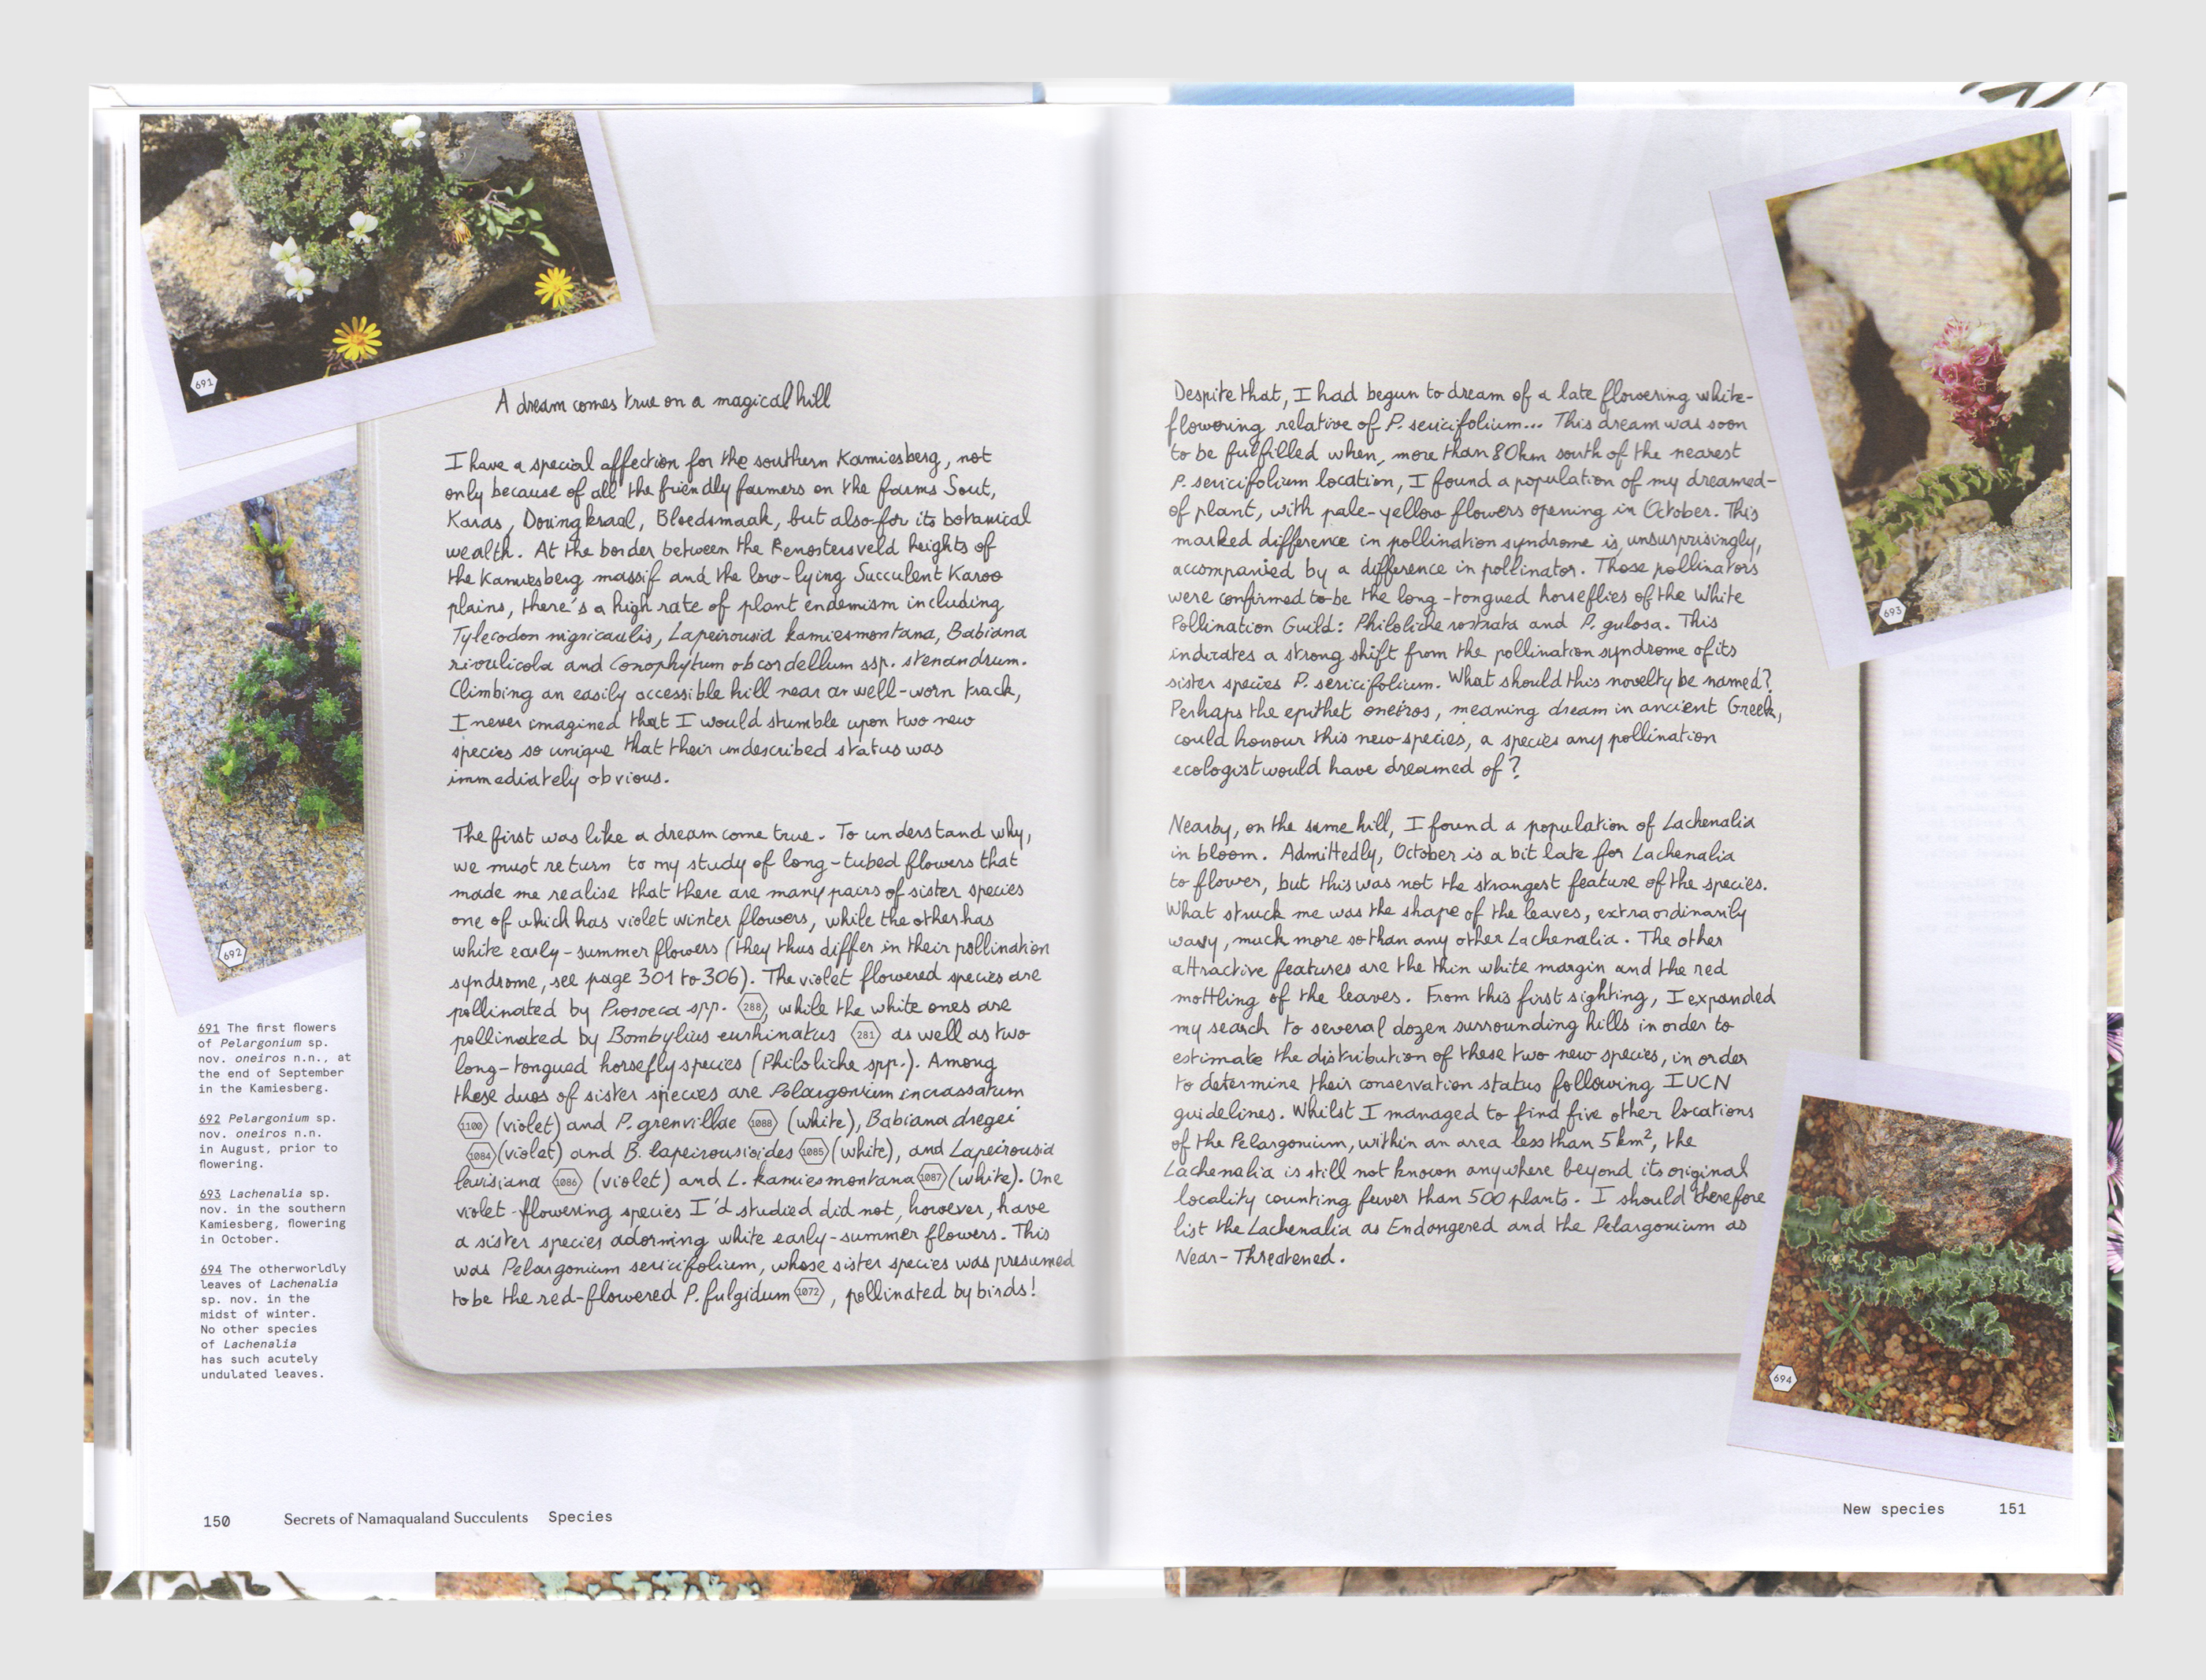 691
A dream comes true on a magical hill
I have a special affection for the southern Kamiesberg, not
only because of all the friendly farmers on the farms Sout,
Karas, Doringkraal, Bloedsmaak, but also for its botanical
wealth. At the border between the Renosterveld heights of
the Kamiesberg massif and the low-lying Succulent Karoo
plains, there's a high rate of plant endemism including
Tylecodon nigricaulis, Lapeirousia kamiesmontana, Babiana
rivulicola and Conophytum obcordellum ssp. stenandrum.
Climbing an easily accessible hill near a well-worn track,
I never imagined that I would stumble upon two new
species so unique that their undescribed status was
immediately obvious.
The first was like a dream come true. To understand why,
we must return to my study of long-tubed flowers that
made me realise that there are many pairs of sister species
one of which has violet winter flowers, while the other has
white early-summer flowers (they thus differ in their pollination
syndrome, see page 301 to 306). The violet flowered species are
pollinated by Prosoeca spp. 288, while the white ones are
pollinated by Bombylius eurhinatus 281 as well as two
long-tongued horsefly species (Philoliche spp.). Among
these duos of sister species are Pelargonium incrassatum
1100 (violet) and P. grenvillae 1088 (white), Babiana dregei
1084 (violet) and B. lapeirousioides 1085 (white), and Lapeirousia
lewisiana 1086 (violet) and L. kamiesmontana 1087 (white). One
violet-flowering species I'd studied did not, however, have
a sister species adorning white early-summer flowers. This
was Pelargonium sericifolium, whose sister species was presumed
to be the red-flowered P. fulgidum 1072, pollinated by birds!
692
691 The first flowers
of Pelargonium sp.
nov. oneiros n.n., at
the end of September
in the Kamiesberg.
692 Pelargonium sp.
nov. oneiros n.n.
in August, prior to
flowering.
693 Lachenalia sp.
nov. in the southern
Kamiesberg, flowering
in October.
694 The otherworldly
leaves of Lachenalia
sp. nov. in the
midst of winter.
No other species
of Lachenalia
has such acutely
undulated leaves.
150 Secrets of Namaqualand Succulents Species
Despite that, I had begun to dream of a late flowering white-
flowering relative of P. sericifolium... This dream was soon
to be fulfilled when, more than 80km south of the nearest
P. sericifolium location, I found a population of my dreamed-
of plant, with pale-yellow flowers opening in October. This
marked difference in pollination syndrome is, unsurprisingly,
accompanied by a difference in pollinator. Those pollinators
were confirmed to be the long-tongued horseflies of the White
Pollination Guild: Philoliche rostrata and P. gulosa. This
indicates a strong shift from the pollination syndrome of its
sister species P. sericifolium. What should this novelty be named?
Perhaps the epithet oneiros, meaning dream in ancient Greek,
could honour this new species, a species any pollination
ecologist would have dreamed of?
Nearby, on the same hill, I found a population of Lachenalia
in bloom. Admittedly, October is a bit late for Lachenalia
to flower, but this was not the strangest feature of the species.
What struck me was the shape of the leaves, extraordinarily
wavy, much more so than any other Lachenalia. The other
attractive features are the thin white margin and the red
mottling of the leaves. From this first sighting, I expanded
my search to several dozen surrounding hills in order to
estimate the distribution of these two new species, in order
to determine their conservation status following IUCN
guidelines. Whilst I managed to find five other locations
of the Pelargonium, within an area less than 5km², the
Lachenalia is still not known anywhere beyond its original
locality counting fewer than 500 plants. I should therefore
list the Lachenalia as Endangered and the Pelargonium as
Near-Threatened.
693
694
New species 151